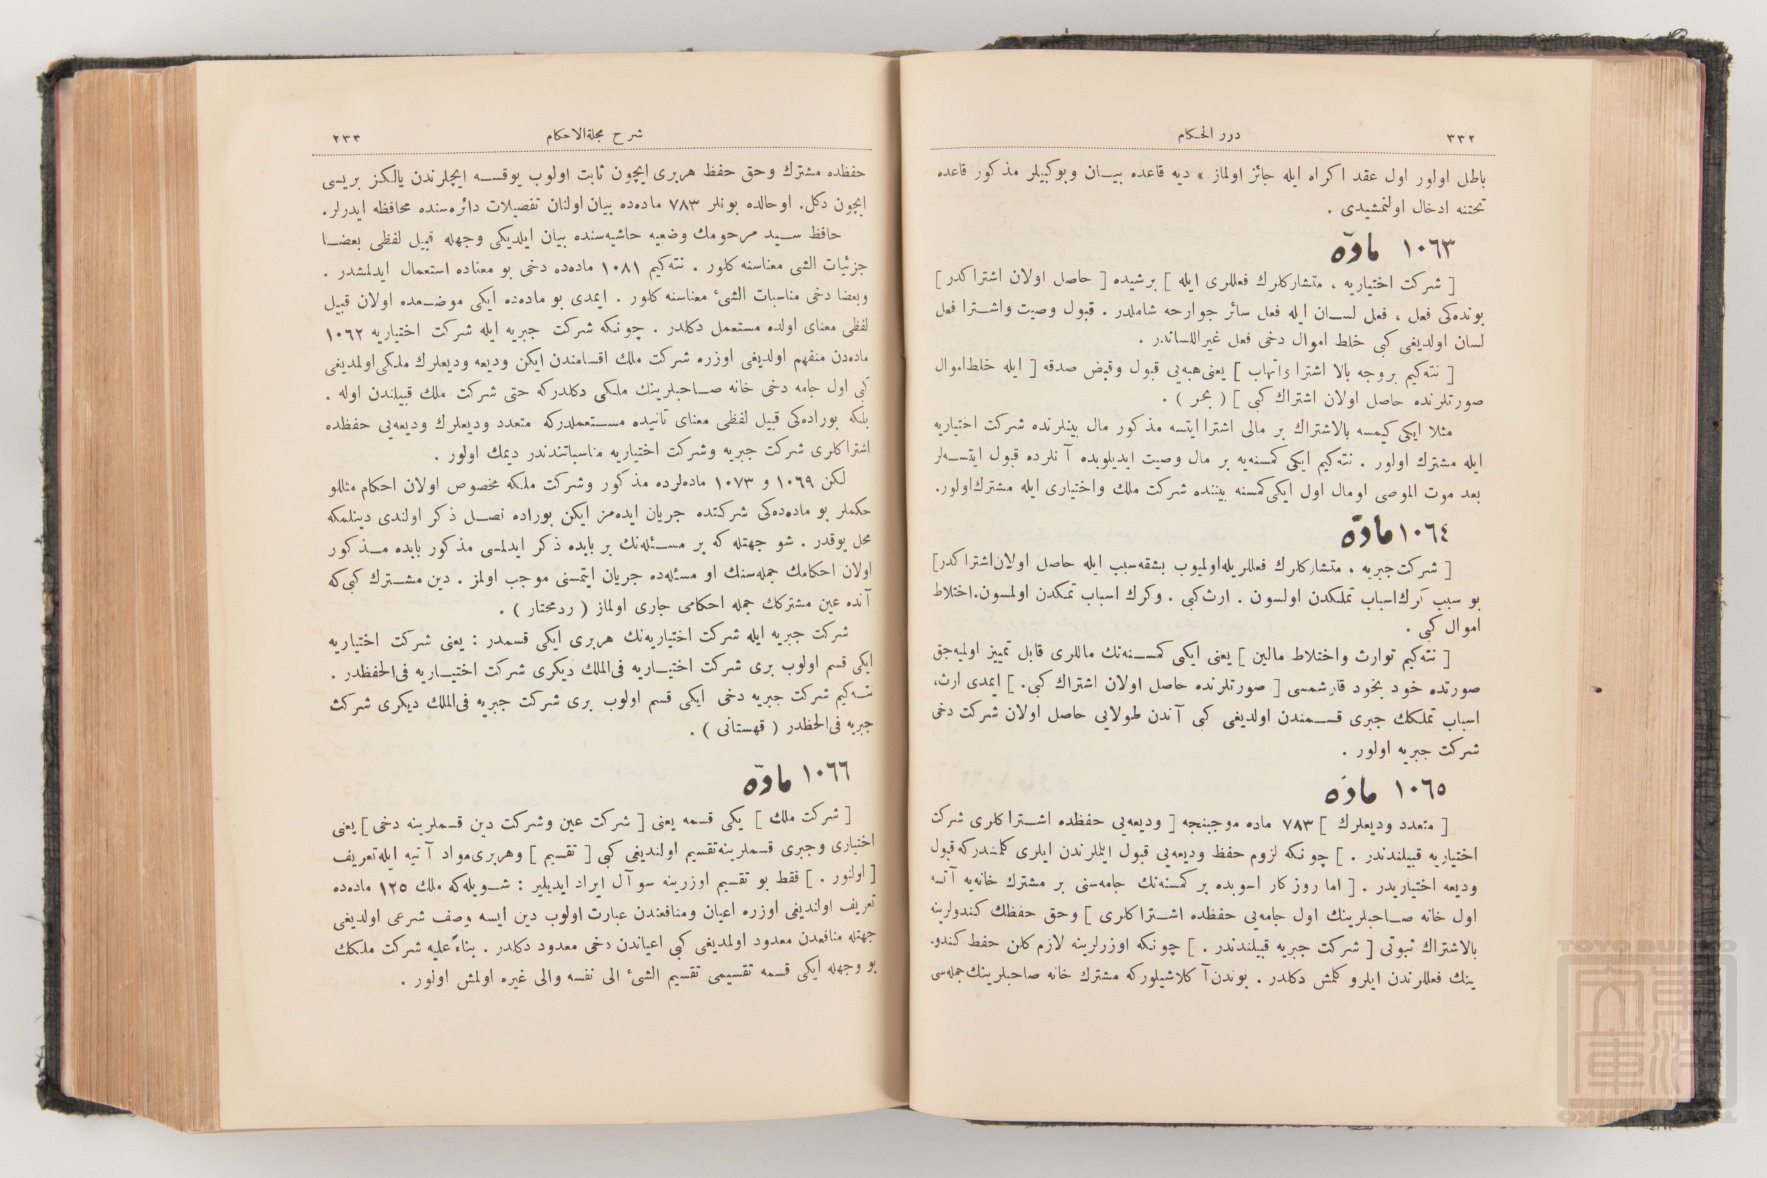 ٣٣٢
درر الحكام
باطل اولور اول عقد اكراه ايله جائز اولماز » ديه قاعده بيـان وبوكبيلر مذكور قاعده
تحتنه ادخال اولنمشيدى .
١٠٦٣ مادّه
[ شركت اختياريه ، متشاركلرك فعللرى ايله ] برشيده [ حاصل اولان اشتراكدر ]
بوندەكى فعل ، فعل لسـان ايله فعل سائر جوارحه شاملدر . قبول وصيت واشـترا فعل
لسان اولديغى كبى خلط اموال دخى فعل غيراللساندر .
[ نته‌كيم بروجه بالا اشترا واتهاب ] يعنى هبه‌يى قبول وقبض صدقه [ ايله خلط اموال
صورتلرنده حاصل اولان اشتراك كبى ] ( بحر ) .
مثلا ايكى كيمسه بالاشتراك بر مالى اشترا ايتسه مذكور مال بينلرنده شركت اختياريه
ايله مشترك اولور . نته‌كيم ايكى كمسنه‌يه بر مال وصيت ايديلوبده آنلرده قبول ايتسـه‌لر
بعد موت الموصى اومال اول ايكى كمسنه بيننده شركت ملك واختيارى ايله مشترك اولور.
١٠٦٤ مادّه
[ شركت جبريه ، متشاركلرك فعللريله اولميوب بشقه سبب ايله حاصل اولان اشتراكدر]
بو سبب كرك اسباب تملكدن اولسون . ارث كبى . وكرك اسباب تمكدن اولمسون.اختلاط
اموال كبى .
[ نته‌كيم توارث واختلاط مالين ] يعنى ايكى كمسـنه‌نك ماللرى قابل تمييز اولميه‌جق
صورتده خود بخود قارشمسى [ صورتلرنده حاصل اولان اشتراك كبى. ] ايمدى ارث،
اسباب تملكك جبرى قسـمندن اولديغى كبى آندن طولايى حاصل اولان شركت دخى
شركت جبريه اولور .
١٠٦٥ مادّه
[ متعدد وديعلرك ] ٧٨٣ ماده موجبنجه [ وديعه‌يى حفظده اشـتراكلرى شركت
اختياريه قبيلندندر . ] چونكه لزوم حفظ وديعه‌يى قبول ايتملرندن ايلرى كلمندركه قبول
وديعه اختياريدر . [ اما روزكار اسوبده بر كمسنه‌نك جامه‌سنى بر مشترك خانه‌يه آتسه
اول خانه صـاحبلرينك اول جامه‌يى حفظده اشـتراكلرى ] وحق حفظك كندولرينه
بالاشتراك ثبوتى [ شركت جبريه قبيلندندر . ] چونكه اوزرلرينه لازم كلن حفظ كندو.
ينك فعللرندن ايلرو كلمش دكلدر . بوندن آكلاشيلوركه مشترك خانه صاحبلرينك جمله‌سى
شرح مجلة‌الاحكام
٢٣٣
حفظده مشترك وحق حفظ هربرى ايچون ثابت اولوب يوقسـه ايچلرندن يالكز بريسى
ايچون دكل. اوحالده بونلر ٧٨٣ ماده‌ده بيان اولنان تفصيلات دائره‌سنده محافظه ايدرلر.
حافظ سـيد مرحومك وضعيه حاشيه‌سنده بيان ايلديكى وجهله قبيل لفظى بعضـا
جزئيات الشى معناسنه كلور . نته‌كيم ١٠٨١ ماده‌ده دخى بو معناده استعمال ايدلمشدر .
وبعضا دخى مناسبات الشئ معناسنه كلور . ايمدى بو ماده‌ده ايكى موضـعده اولان قبيل
لفظى معناى اولده مستعمل دكلدر . چونكه شركت جبريه ايله شركت اختياريه ١٠٦٢
ماده‌دن منفهم اولديغى اوزره شركت ملك اقسامندن ايكن وديعه وديعلرك ملكى اولمديغى
كبى اول جامه دخى خانه صـاحبلرينك ملكى دكلدركه حتى شركت ملك قبيلندن اوله .
بلكه بوراده‌كى قبيل لفظى معناى ثانيده مسـتعملدركه متعدد وديعلرك وديعه‌يى حفظده
اشتراكلرى شركت جبريه وشركت اختياريه مناسباتندندر ديمك اولور .
لكن ١٠٦٩ و ١٠٧٣ ماده‌لرده مذكور وشركت ملكه مخصوص اولان احكام مثللو
حكملر بو ماده‌ده‌كى شركتده جريان ايده‌مز ايكن بوراده نصـل ذكر اولندى دينلمكه
محل يوقدر . شو جهتله كه بر مسـئله‌نك بر بابده ذكر ايدلمسى مذكور بابده مـذكور
اولان احكامك جمله‌سنك او مسئله‌ده جريان ايتمسنى موجب اولمز . دين مشـترك كبى كه
آنده عين مشتركك جمله احكامى جارى اولماز ( ردمحتار ) .
شركت جبريه ايله شركت اختياريه‌نك هربرى ايكى قسمدر : يعنى شركت اختياريه
ايكى قسم اولوب برى شركت اختيـاريه فى‌الملك ديكرى شركت اختيـاريه فى‌الحفظدر .
نتـه‌كيم شركت جبريه دخى ايكى قسم اولوب برى شركت جبريه فى‌الملك ديكرى شركت
جبريه فى‌الحفظدر ( قهستانى ) .
١٠٦٦ مادّه
[ شركت ملك ] يكى قسمه يعنى [ شركت عين وشركت دين قسملرينه دخى ] يعنى
اختيارى وجبرى قسملرينه تقسيم اولنديغى كبى [ تقسيم ] وهربرى مواد آتيه ايله تعريف
[ اولنور . ] فقط بو تقسيم اوزرينه سوآل ايراد ايديلير : شـويله‌كه ملك ١٢٥ ماده‌ده
تعريف اولنديغى اوزره اعيان ومنافعندن عبارت اولوب دين ايسه وصف شرعى اولديغى
جهتله منافعدن معدود اولمديغى كبى اعياندن دخى معدود دكلدر . بناءً عليه شركت ملكك
بو وجهله ايكى قسمه تقسيمى تقسيم الشئ الى نفسه والى غيره اولمش اولور .
TOYO BUNKO